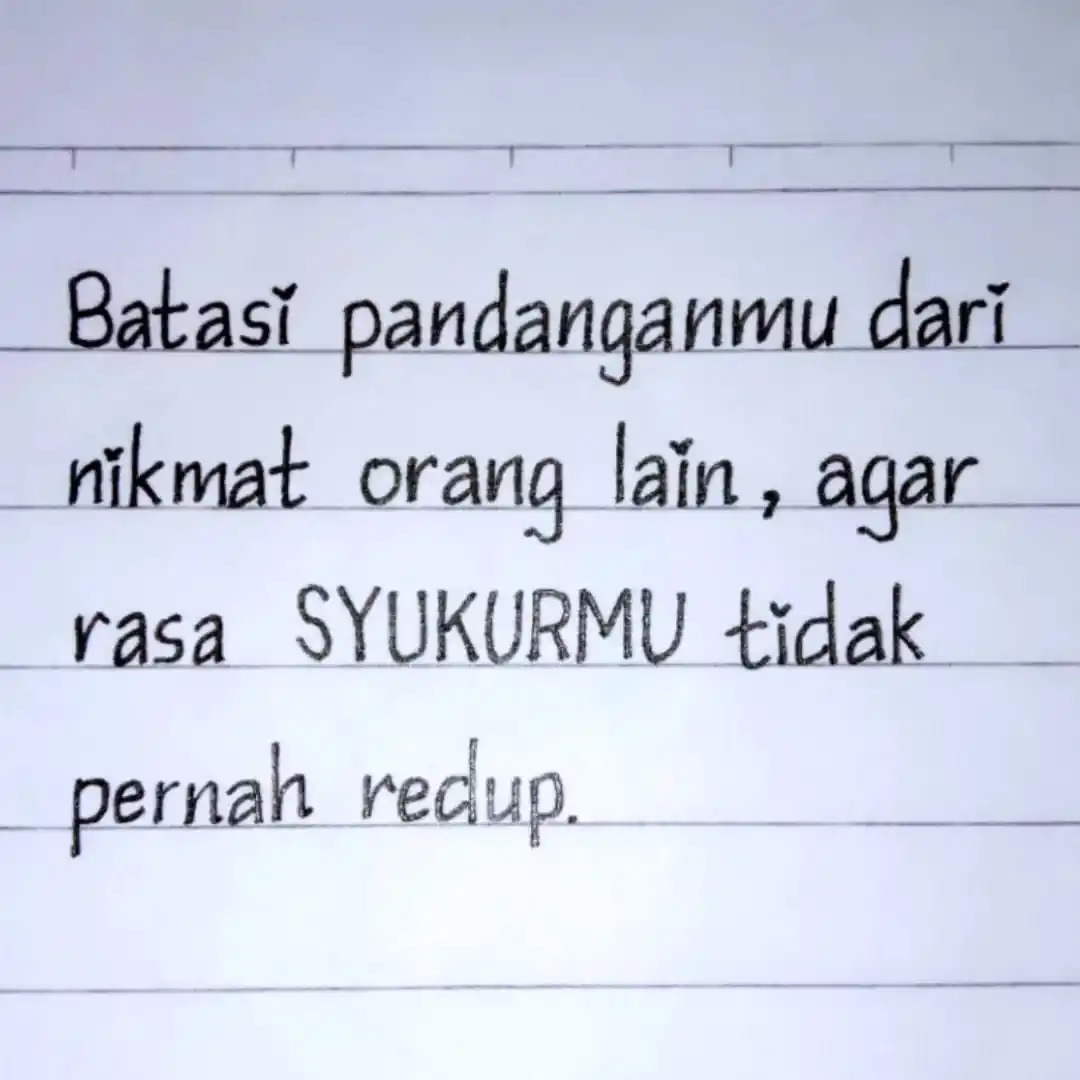 Batasi pandanganmu dari
nikmat orang lain, agar
rasa SYUKURMU tidak
pernah redup.